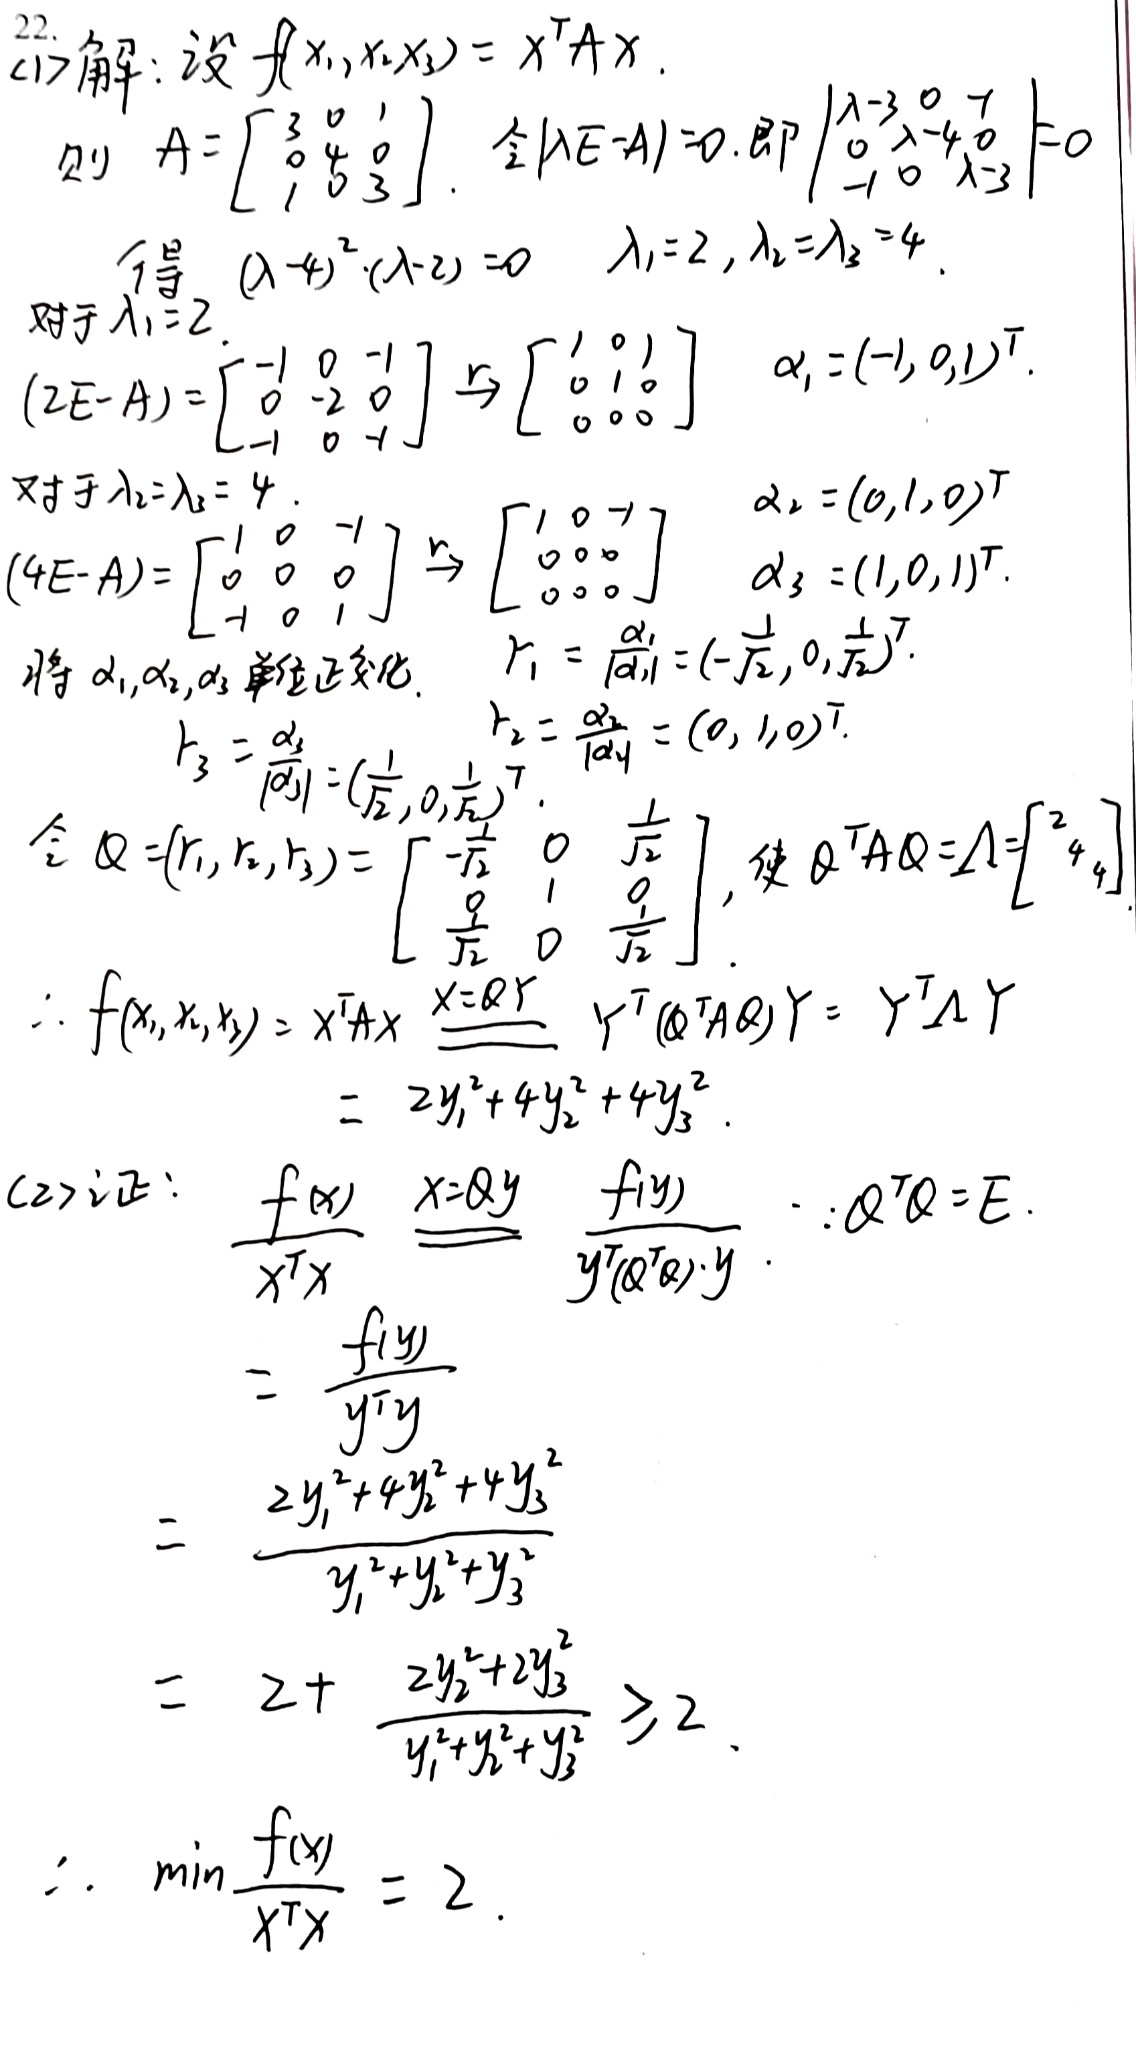 22.
<1>解：设 f(x₁,x₂,x₃) = xᵀAx.
则 A = [3 0 1; 0 4 0; 1 0 3]. 令|λE-A|=0. 即 |λ-3 0 -1; 0 λ-4 0; -1 0 λ-3| = 0
得 (λ-4)²·(λ-2) = 0 λ₁=2, λ₂=λ₃=4.
对于λ₁=2.
(2E-A) = [-1 0 -1; 0 -2 0; -1 0 -1] →r [1 0 1; 0 1 0; 0 0 0] α₁ = (-1,0,1)ᵀ.
对于λ₂=λ₃=4.
(4E-A) = [1 0 -1; 0 0 0; -1 0 1] →r [1 0 -1; 0 0 0; 0 0 0] α₂ = (0,1,0)ᵀ
α₃ = (1,0,1)ᵀ.
将 α₁,α₂,α₃ 单位正交化. r₁ = α₁/|α₁| = (-1/√2, 0, 1/√2)ᵀ.
r₂ = α₂/|α₂| = (0,1,0)ᵀ.
r₃ = α₃/|α₃| = (1/√2, 0, 1/√2)ᵀ.
令 Q = (r₁,r₂,r₃) = [-1/√2 0 1/√2; 0 1 0; 1/√2 0 1/√2], 使 QᵀAQ = Λ = [2 4 4].
∴ f(x₁,x₂,x₃) = xᵀAx x=QY Yᵀ(QᵀAQ)Y = YᵀΛY
= 2y₁²+4y₂²+4y₃².
<2>证： f(x)/xᵀx x=Qy f(y)/yᵀ(QᵀQ)·y. ∵QᵀQ=E.
= f(y)/yᵀy
= (2y₁²+4y₂²+4y₃²)/(y₁²+y₂²+y₃²)
= 2 + (2y₂²+2y₃²)/(y₁²+y₂²+y₃²) ≥ 2.
∴ min f(x)/xᵀx = 2.